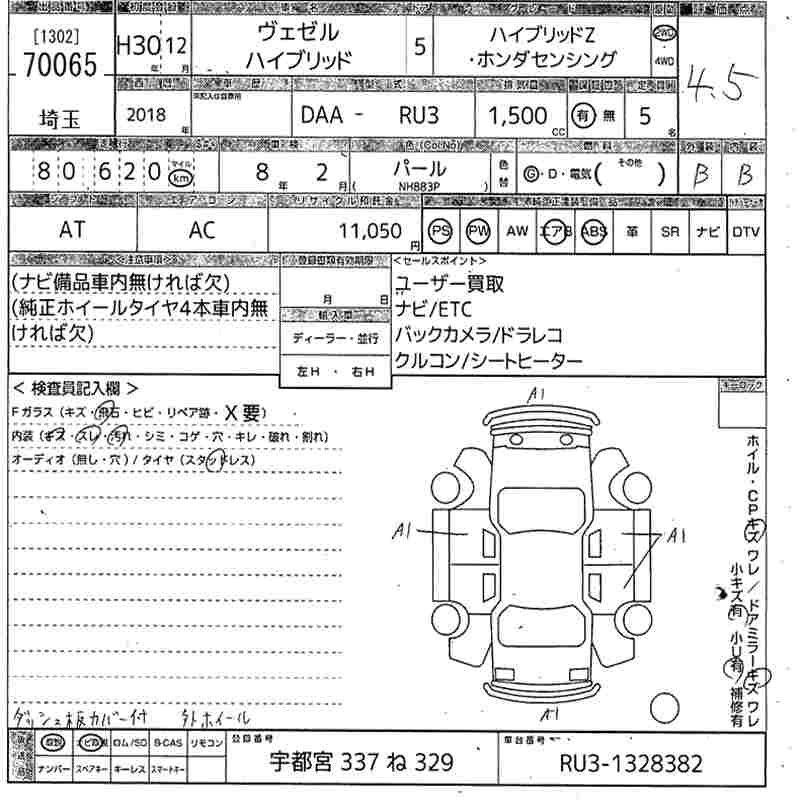 [1302]
70065
埼玉
H30 12
年 月
ヴェゼル
ハイブリッド
5
ハイブリッドZ
・ホンダセンシング
2WD
・
4WD
4.5
2018 年
DAA - RU3
1,500 CC
有 ・ 無
5 名
80620 マイル km
8年 2月
パール
( NH883P )
色替
G・D・電気( その他 )
B
B
シフト
エアコン
リサイクル預託金
AT
AC
11,050 円
PS PW AW エアB ABS 革 SR ナビ DTV
<注意事項>
(ナビ備品車内無ければ欠)
(純正ホイールタイヤ4本車内無
ければ欠)
登録書類有効期限
月 日
輸入車
ディーラー・並行
左H ・ 右H
<セールスポイント>
ユーザー買取
ナビ/ETC
バックカメラ/ドラレコ
クルコン/シートヒーター
キーロック
< 検査員記入欄 >
Fガラス (キズ・飛石・ヒビ・リペア跡・X要)
内装 (キズ・スレ・汚れ・シミ・コゲ・穴・キレ・破れ・割れ)
オーディオ (無し・穴) / タイヤ (スタッドレス)
A1
A1
A1
A1
ホイル・CPキズ ワレ / ドアミラーキズ ワレ
小キズ有 小U有 / 補修有
ダッシュ板カバー付 外ホイール
ロム/SD B-CAS リモコン
ナンバー スペアキー キーレス スマートキー
登録番号
宇都宮 337 ね 329
車台番号
RU3-1328382